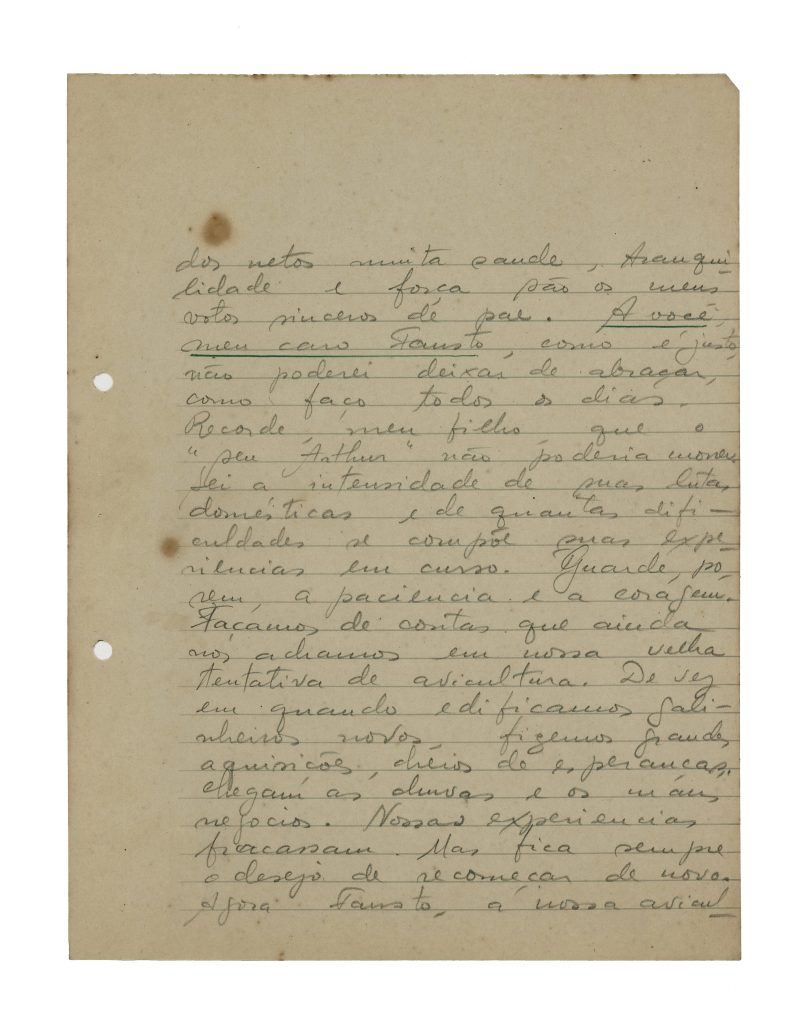 dos netos muita saude, tranqui
lidade e força são os meus
votos sinceros de pae. A você,
meu caro Fausto, como é justo,
não poderei deixar de abraçar,
como faço todos os dias.
Recorde, meu filho, que o
"seu Arthur" não poderia morrer.
Sei a intensidade de suas lutas
domésticas e de quantas difi-
culdades se compõe suas expe-
riencias em curso. Guarde, po-
rem, a paciencia e a coragem.
Façamos de contas que ainda
nos achamos em nossa velha
tentativa de avicultura. De vez
em quando edificamos gali-
nheiros novos, fizemos grandes
aquisições, cheios de esperanças,
chegam as chuvas e os máus
negocios. Nossas experiencias
fracassam. Mas fica sempre
o desejo de recomeçar de novo.
Agora Fausto, a nossa avicul-